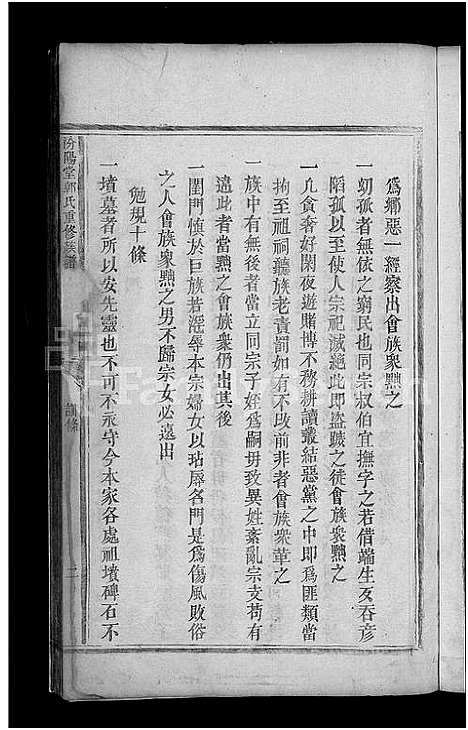 為鄉惡一經察出會族衆黜之
一幼孤者無依之窮民也同宗叔伯宜撫字之若借端生
陷孤以至使人宗祀滅絶此即盜蹠之徒會族衆黜之
一凡貪奢好閑夜遊賭博不務耕讀叢結惡黨之中即爲匪類當
拘至祖祠聽族老責罰如有不改前非者會族衆革之
一族中有無後者當立同宗子姪爲嗣毋致異姓紊亂宗支苟有
違此者當黜之會族衆仍出其後
一閨門慎於巨族若淫辱本宗婦女以玷辱名門是爲傷風敗俗
之人會族衆黜之男不歸宗女必遠出
勉規十條
一墳墓者所以安先靈也不可不永守今本家各處祖墳碑石不
汾陽堂郭氏重修族譜
條
二